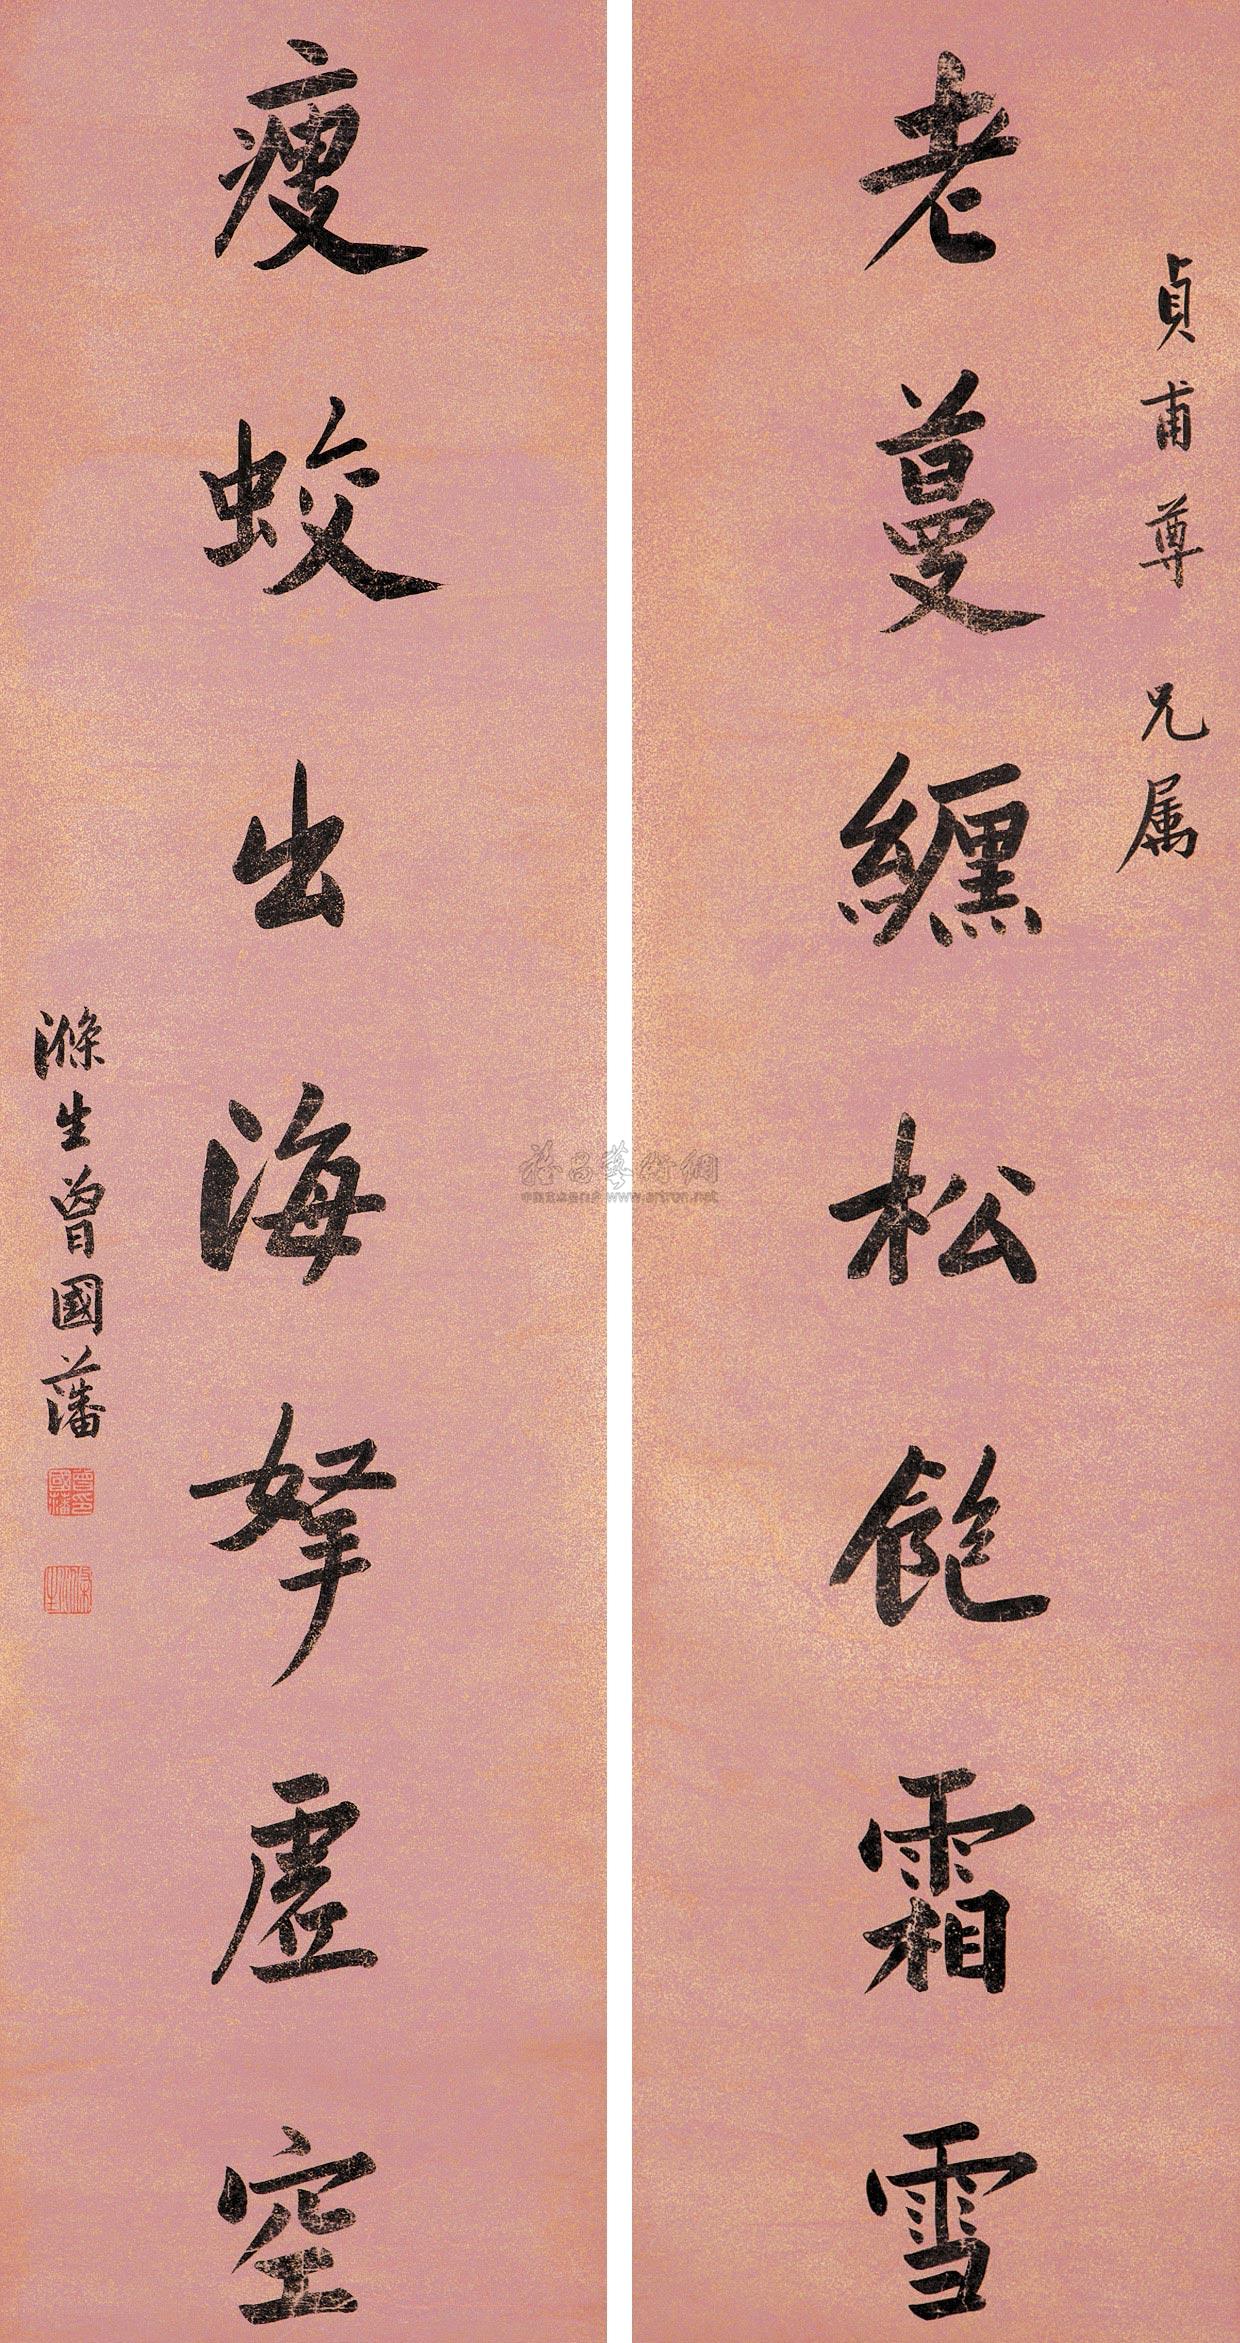 貞甫尊兄属
老蔓纏松飽霜雪
瘦蛟出海拏虛空
滌生曾國藩
曾國藩印
滌生
雅昌藝術網
www.artron.net